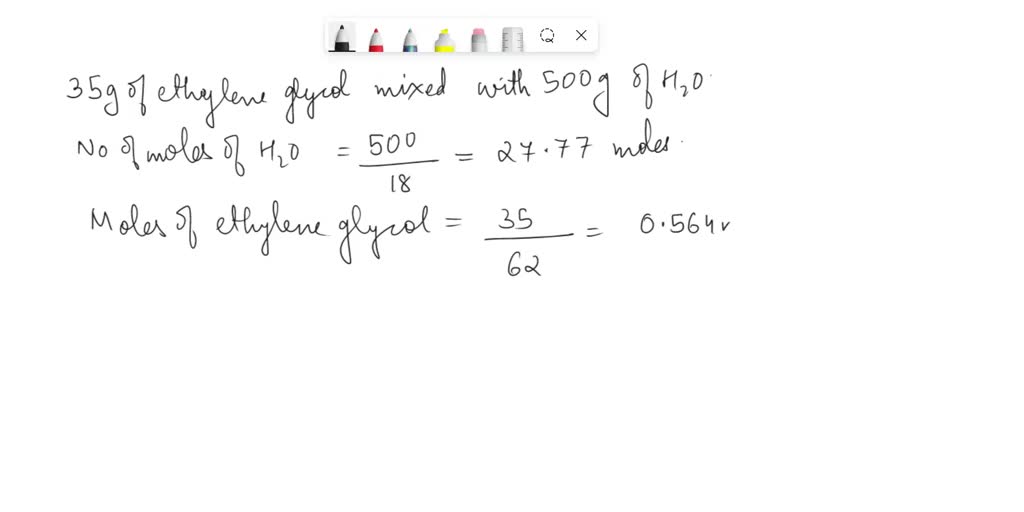 35g of ethylene glycol mixed with 500g of H₂O.
No of moles of H₂O = 500/18 = 27.77 moles.
Moles of ethylene glycol = 35/62 = 0.564